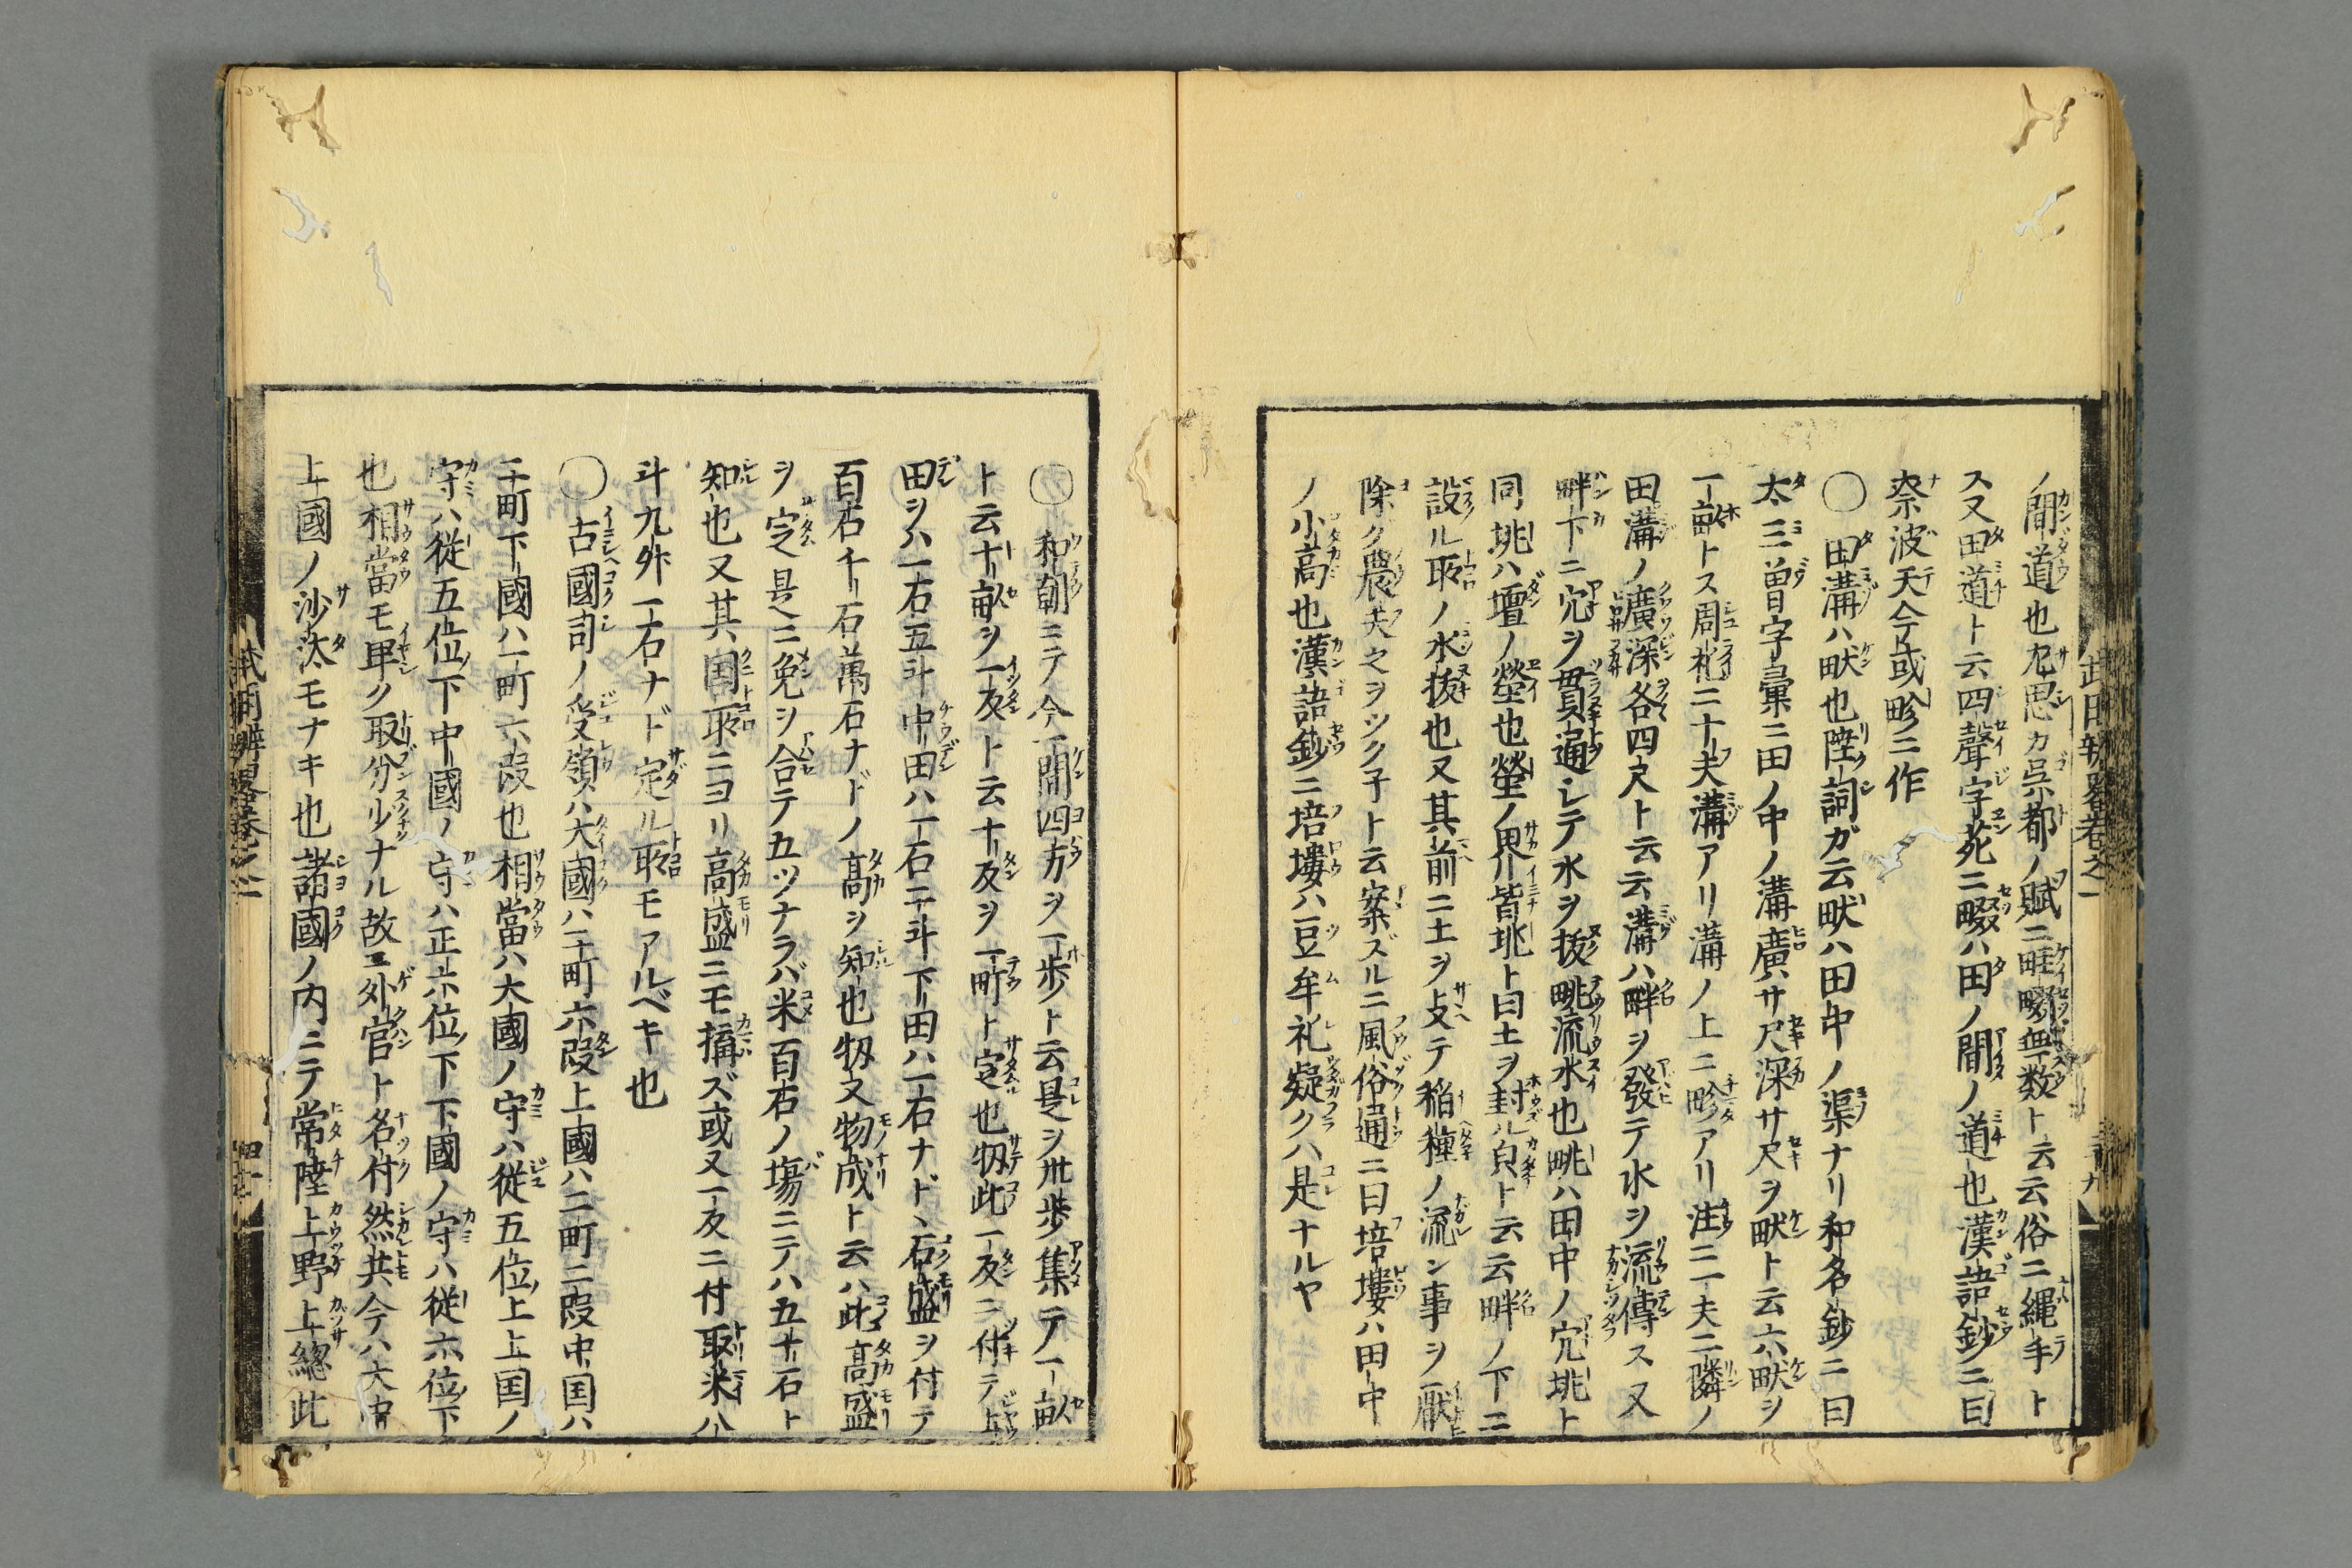 ノ間道也左思カ呉都ノ賦ニ畦畷無数ト云云俗ニ縄手ト
ス又田道ト云四聲字苑ニ畷ハ田ノ間ノ道也漢語鈔ニ曰
奈波天今或畛ニ作
〇田溝ハ畎也陸詞ガ云畎ハ田中ノ渠ナリ和名鈔ニ曰
太三曽字彙ニ田ノ中ノ溝廣サ尺深サ尺ヲ畎ト云六畎ヲ
一畝トス周礼ニ十夫溝アリ溝ノ上ニ畛アリ注ニ一夫二隣ノ
田溝ノ廣深各四尺ト云云溝ハ畔ヲ發テ水ヲ流傳ス又
畔下ニ穴ヲ貫通シテ水ヲ抜畎流水也畎ハ田中ノ穴ト
同ハ壇ノ塋也塋ノ界皆ト曰土ヲ封ル皃ト云云畔ノ下ニ
設ル所ノ水抜也又其前ニ土ヲ支テ稲種ノ流ン事ヲ厭
除ク農夫之ヲツク子ト云案ズルニ風俗通ニ曰培塿ハ田中
ノ小高也漢語鈔ニ培塿ハ豆牟礼疑クハ是ナルヤ
武用辨畧巻之一
三十九
〇和朝ニテ今一間四方ヲ一歩ト云是ヲ卅歩集テ一畝
ト云十畝ヲ一反ト云十反ヲ一町ト定也扨此一反ニ付テ上
田ヲハ一石五斗中田ハ一石二斗下田ハ一石ナド丶石盛ヲ付テ
百石千石萬石ナドノ高ヲ知也扨又物成ト云ハ此高盛
ヲ定是ニ免ヲ合テ五ツナラバ米百石ノ場ニテハ五十石ト
知也又其国所ニヨリ高盛ニモ搆ズ或又一反ニ付取米八
斗九斗一石ナド定ル所モアルベキ也
〇古國司ノ受領ハ大國ハ二町六段上國ハ二町二段中国ハ
二町下國ハ一町六段也相當ハ大國ノ守ハ従五位上上国ノ
守ハ従五位下中國ノ守ハ正六位下下國ノ守ハ従六位下
也相當モ卑ク取分少ナル故ニ外官ト名付然共今ハ大中
上國ノ沙汰モナキ也諸國ノ内ニテ常陸上野上總此
武用辨畧巻之一
四十